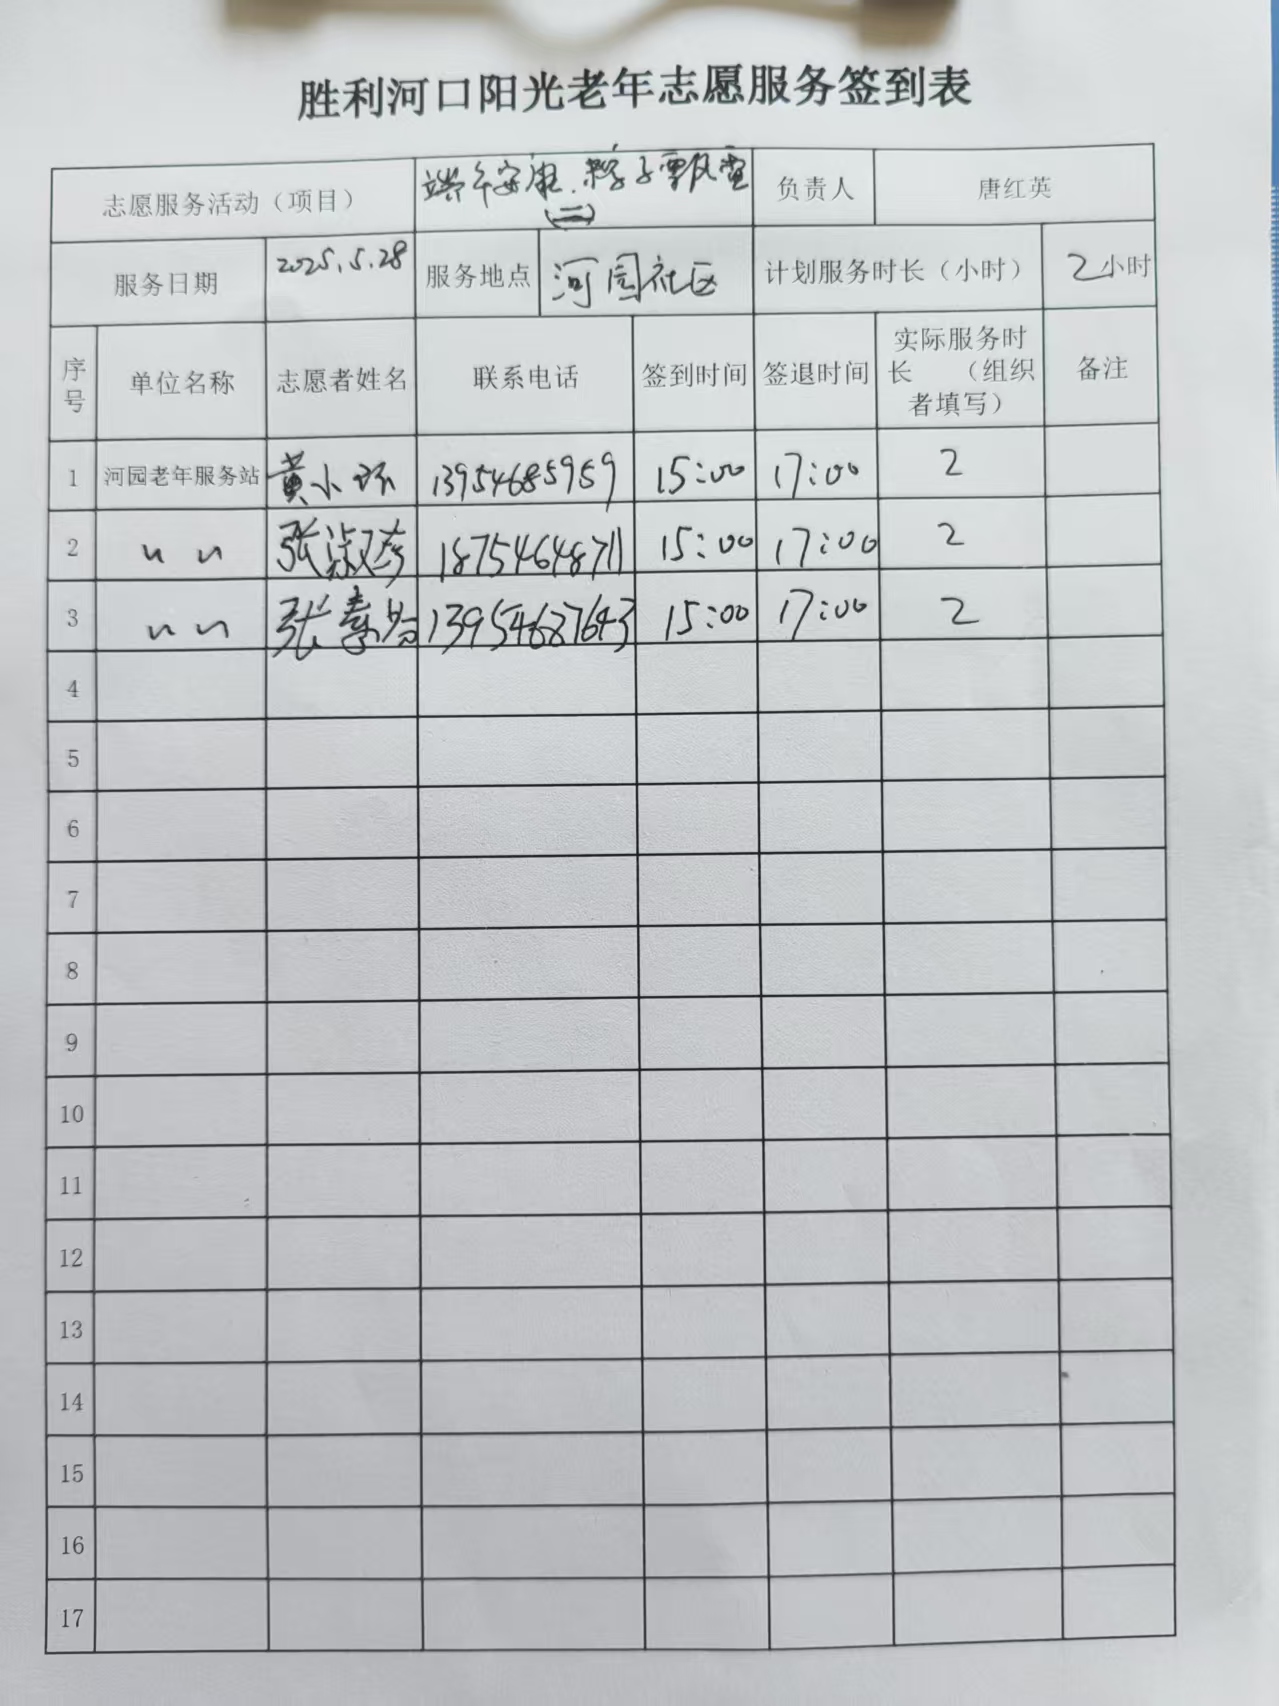 胜利河口阳光老年志愿服务签到表
志愿服务活动（项目） 端午安康.粽子飘香 负责人 唐红英
（二）
服务日期 2025.5.28 服务地点 河园社区 计划服务时长（小时） 2小时
序号 单位名称 志愿者姓名 联系电话 签到时间 签退时间 实际服务时长 （组织者填写） 备注
1 河园老年服务站 黄小环 13954685959 15:00 17:00 2
2 〃 〃 张淑彦 18754648711 15:00 17:00 2
3 〃 〃 张 13954687643 15:00 17:00 2
4
5
6
7
8
9
10
11
12
13
14
15
16
17